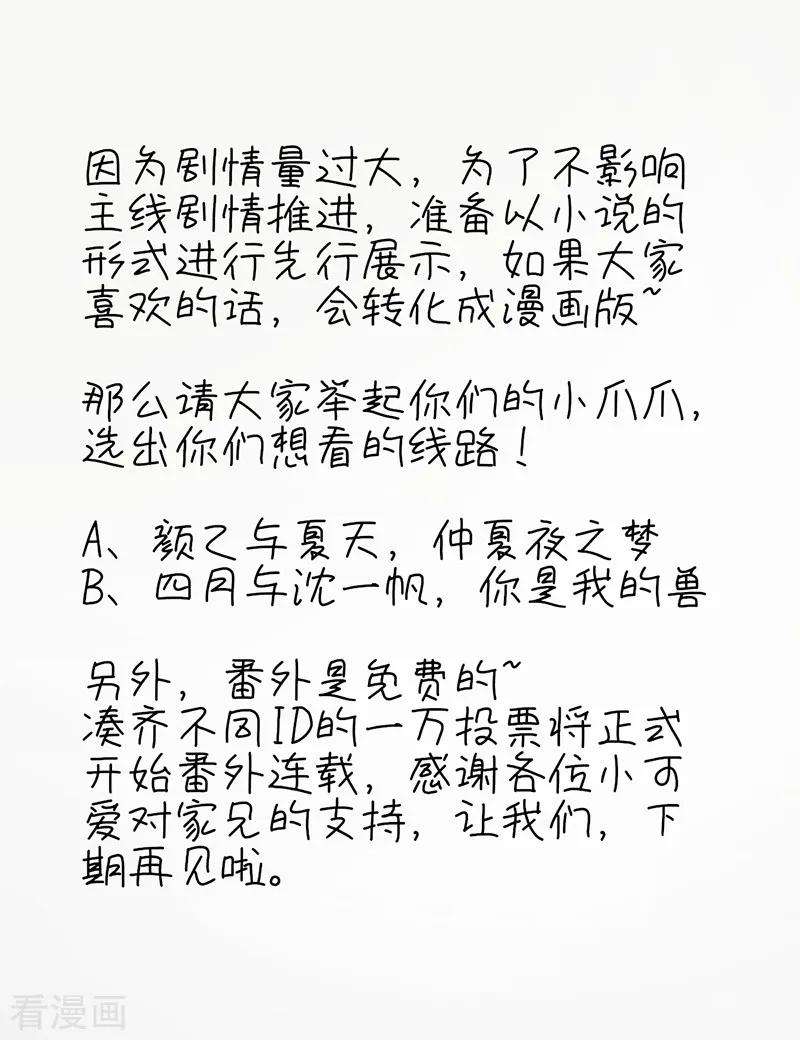 因为剧情量过大，为了不影响
主线剧情推进，准备以小说的
形式进行先行展示，如果大家
喜欢的话，会转化成漫画版~
那么请大家举起你们的小爪爪，
选出你们想看的线路！
A、颜乙与夏天，仲夏夜之梦
B、四月与沈一帆，你是我的兽
另外，番外是免费的~
凑齐不同ID的一万投票将正式
开始番外连载，感谢各位小可
爱对家兄的支持，让我们，下
期再见啦。
看漫画